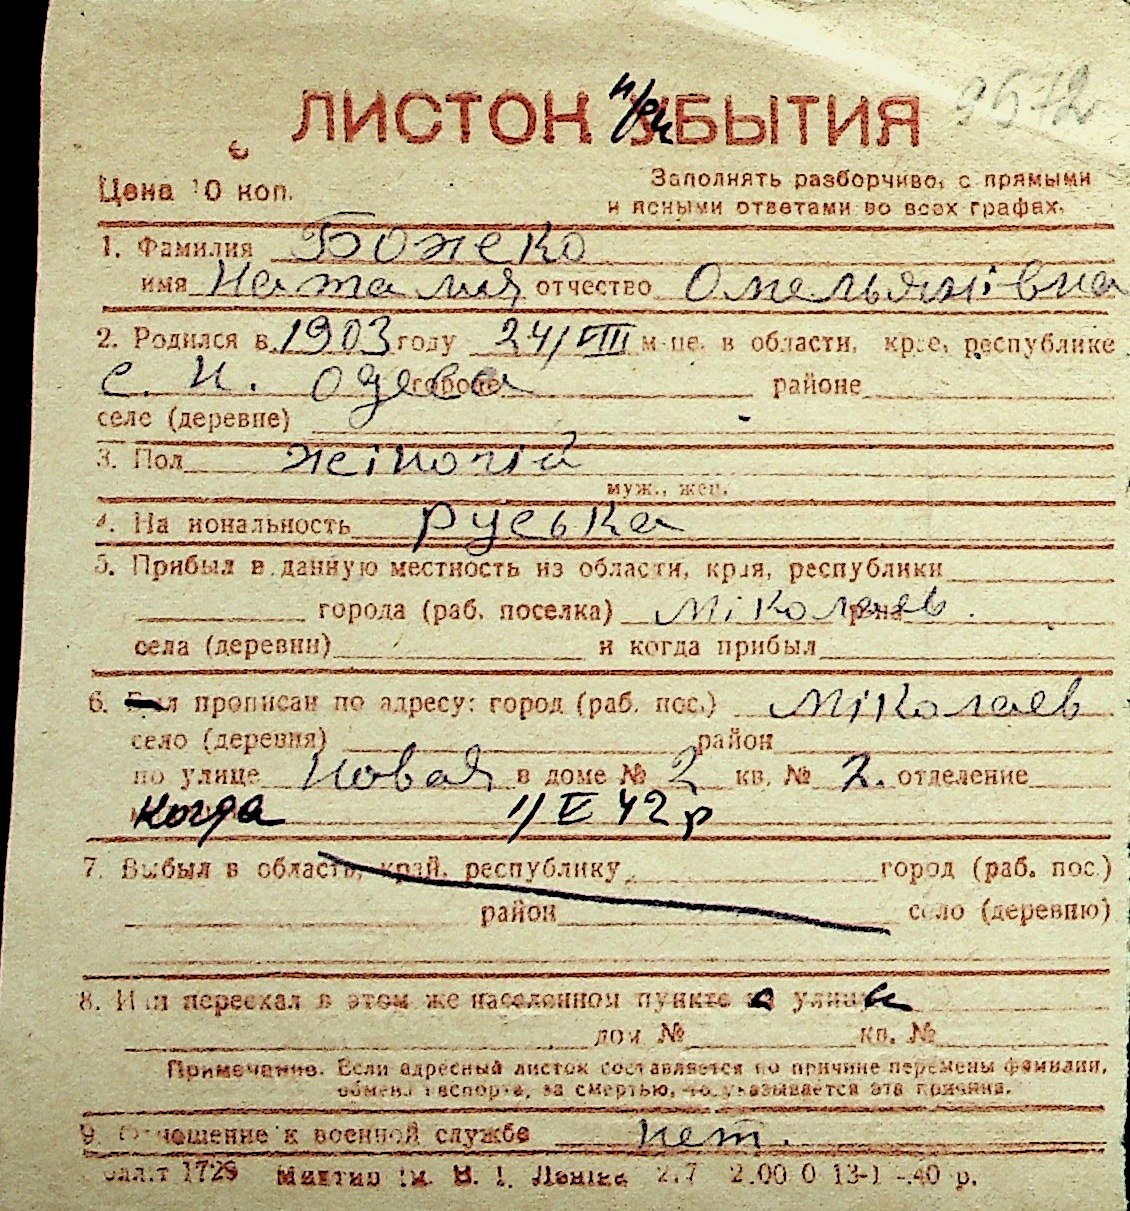 ЛИСТОК при УБЫТИЯ 9572
Цена 10 коп. Заполнять разборчиво, с прямыми
и ясными ответами во всех графах.
1. Фамилия Божеко
имя Наталия отчество Омельянівна
2. Родился в 1903 году 24/VIII м-це, в области, крае, республике
с. н. Одеса городе районе
селе (деревне)
3. Пол жіночій
муж., жен.
4. Национальность руська
5. Прибыл в данную местность из области, края, республики
города (раб. поселка) Міколаев р-на
села (деревни) и когда прибыл
6. Был прописан по адресу: город (раб. пос.) Міколаев
село (деревня) район
по улице Новая в доме № 2 кв. № 2. отделение
когда 11 V 42 р
7. Выбыл в область, край, республику город (раб. пос.)
район село (деревню)
8. Или переехал в этом же населенном пункте с улицы
дом № кв. №
Примечание. Если адресный листок составляется по причине перемены фамилии,
обмена паспорта, за смертью, то указывается эта причина.
9. Отношение к военной службе нет.
1729 ім. В. І. Леніна 2.00 0 13-1 40 р.